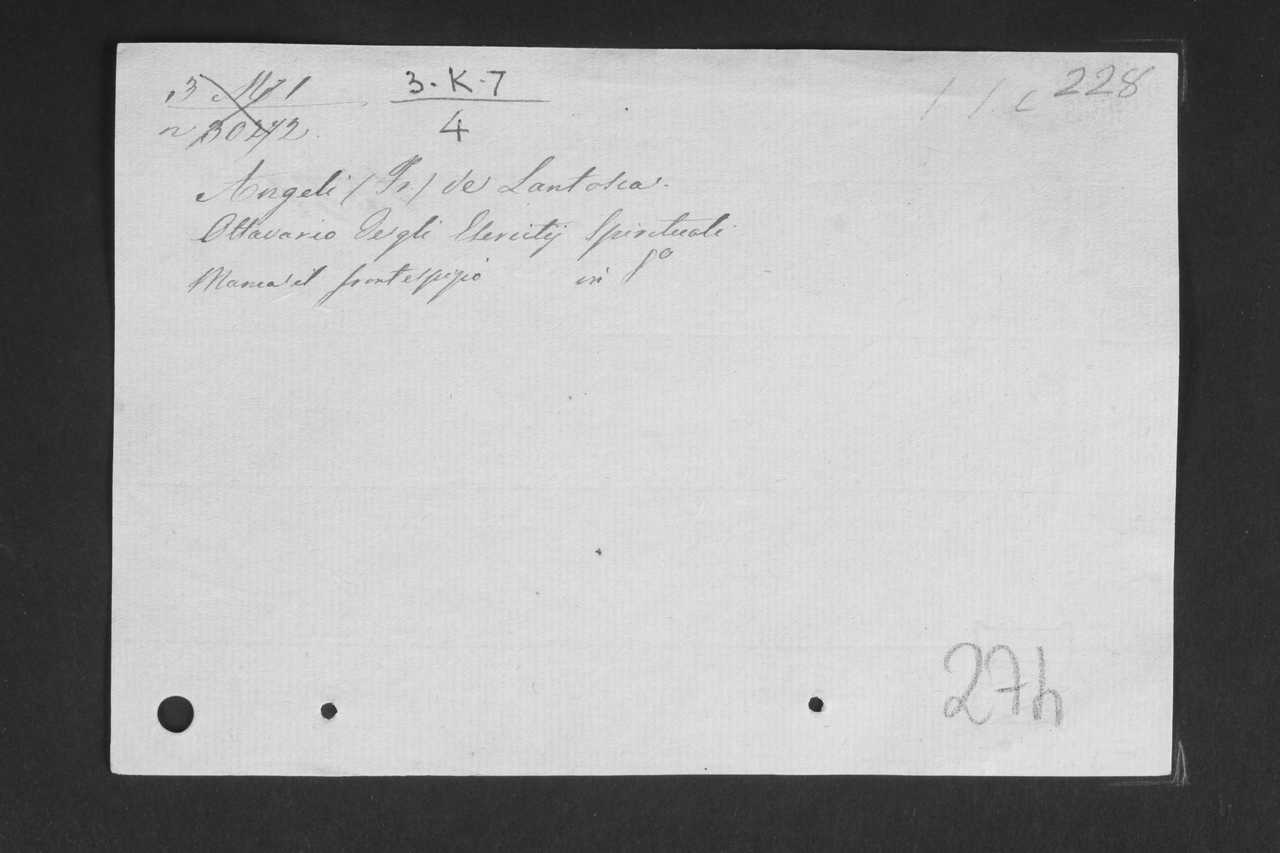 3-K-7
4
228
n 30272
Angeli (Fr.) de Lantosca.
Ottavario degli Esercitij Spirituali
Manca il frontespizio in 8º
27h